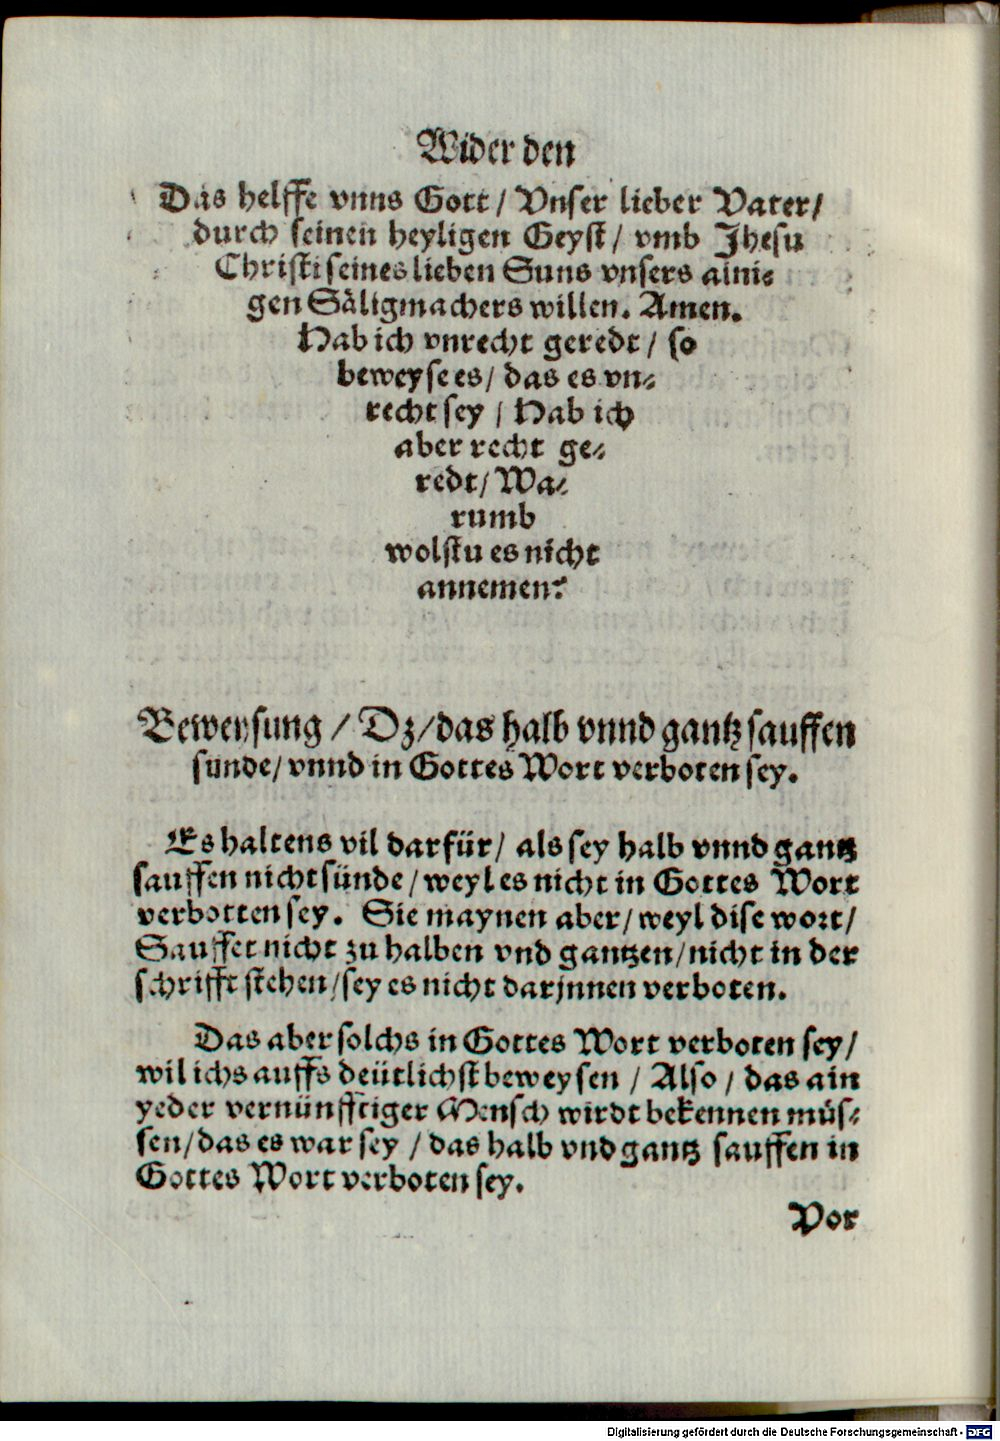 Wider den
Das helffe vnns Gott / Vnser lieber Vater /
durch seinen heyligen Geyst / vmb Jhesu
Christi seines lieben Suns vnsers aini⸗
gen Säligmachers willen. Amen.
Hab ich vnrecht geredt / so
beweyse es / das es vn⸗
recht sey / Hab ich
aber recht ge⸗
redt / Wa⸗
rumb
wolstu es nicht
annemen?
Beweysung / Dz / das halb vnnd gantz sauffen
sünde / vnnd in Gottes Wort verboten sey.
Es haltens vil darfür / als sey halb vnnd gantz
sauffen nicht sünde / weyl es nicht in Gottes Wort
verbotten sey. Sie maynen aber / weyl dise wort /
Sauffet nicht zu halben vnd gantzen / nicht in der
schrifft stehen / sey es nicht darjnnen verboten.
Das aber solchs in Gottes Wort verboten sey /
wil ichs auffs deütlichst beweysen / Also / das ain
yeder vernünfftiger Mensch wirdt bekennen müs⸗
sen / das es war sey / das halb vnd gantz sauffen in
Gottes Wort verboten sey.
Vor
Digitalisierung gefördert durch die Deutsche Forschungsgemeinschaft - DFG